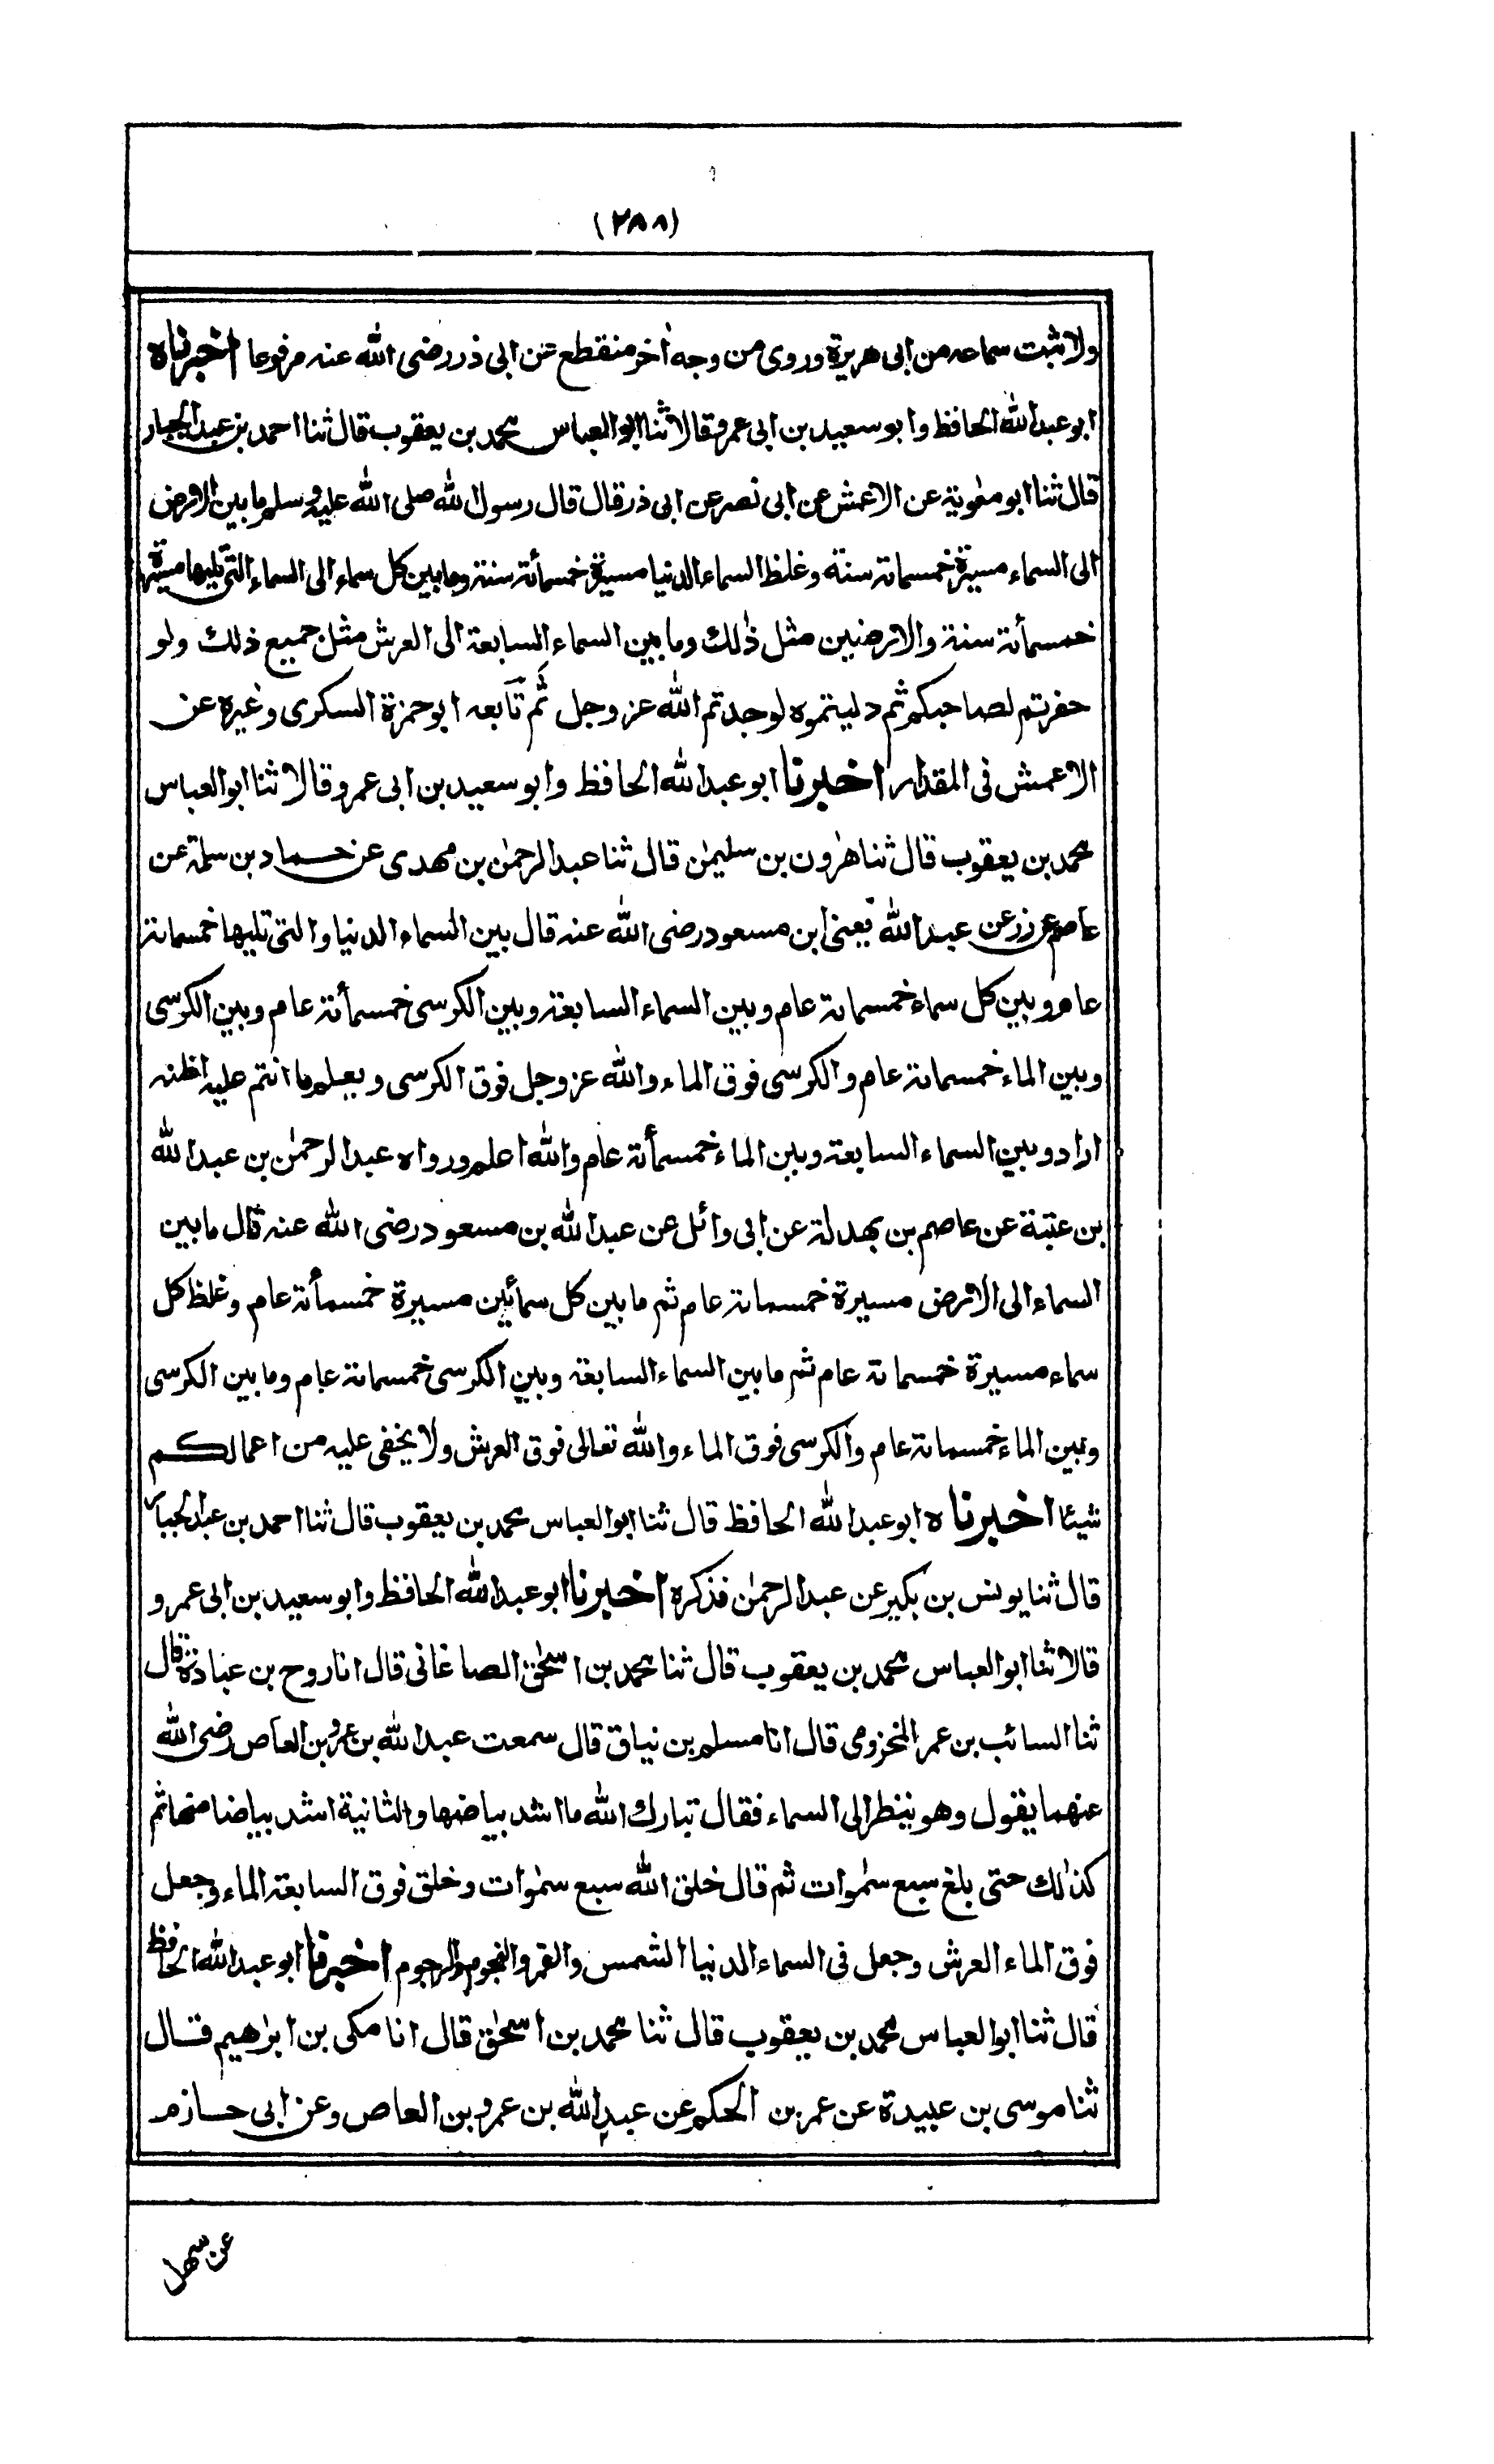 (٢٨٨)
ولا ثبت سماعه من ابى هريرة وروى من وجه اٰخر منقطع عن ابى ذر رضى الله عنه مرفوعا اخبرناه
ابو عبد الله الحافظ وابو سعيد بن ابى عمرو قالا ثنا ابو العباس محمد بن يعقوب قال ثنا احمد بن عبد الجبار
قال ثنا ابو معٰوية عن الاعمش عن ابى نصر عن ابى ذر قال قال رسول الله صلى الله عليه وسلم ما بين الارض
الى السماء مسيرة خمسمائة سنة وغلظ السماء الدنيا مسيرة خمسمأئة سنة وما بين كل سماء الى السماء التى تليها مسيرة
خمسمأئة سنة والارضين مثل ذٰلك وما بين السماء السابعة الى العرش مثل جميع ذلك ولو
حفرتم لصاحبكم ثم دليتموه لوجدتم الله عز وجل ثم تابعه ابو حمزة السكرى وغيره عن
الاعمش فى المقدار اخبرنا ابو عبد الله الحافظ وابو سعيد بن ابى عمرو قالا ثنا ابو العباس
محمد بن يعقوب قال ثنا هٰرون بن سليمٰن قال ثنا عبد الرحمٰن بن مهدى عن حماد بن سلمة عن
عاصم عن زر عن عبد الله يعنى ابن مسعود رضى الله عنه قال بين السماء الدنيا والتى تليها خمسمائة
عام وبين كل سماء خمسمائة عام وبين السماء السابعة وبين الكرسى خمسمأئة عام وبين الكرسى
وبين الماء خمسمائة عام والكرسى فوق الماء والله عز وجل فوق الكرسى ويعلم ما انتم عليه اظنه
اراد وبين السماء السابعة وبين الماء خمسمأئة عام والله اعلم ورواه عبد الرحمٰن بن عبد الله
بن عتبة عن عاصم بن بهدلة عن ابى وائل عن عبد الله بن مسعود رضى الله عنه قال ما بين
السماء الى الارض مسيرة خمسمائة عام ثم ما بين كل سمائين مسيرة خمسمأئة عام وغلظ كل
سماء مسيرة خمسمائة عام ثم ما بين السماء السابعة وبين الكرسى خمسمائة عام وما بين الكرسى
وبين الماء خمسمائة عام والكرسى فوق الماء والله تعالى فوق العرش ولا يخفى عليه من اعمالكم
شيئا اخبرناه ابو عبد الله الحافظ قال ثنا ابو العباس محمد بن يعقوب قال ثنا احمد بن عبد الجبار
قال ثنا يونس بن بكير عن عبد الرحمٰن فذكره اخبرنا ابو عبد الله الحافظ وابو سعيد بن ابى عمرو
قالا ثنا ابو العباس محمد بن يعقوب قال ثنا محمد بن اسحٰق الصاغانى قال انا روح بن عبادة قال
ثنا السائب بن عمر المخزومى قال انا مسلم بن نياق قال سمعت عبد الله بن عمرو بن العاص رضى الله
عنهما يقول وهو ينظر الى السماء فقال تبارك الله ما اشد بياضها والثانية اشد بياضا منها ثم
كذٰلك حتى بلغ سبع سمٰوات ثم قال خلق الله سبع سمٰوات وخلق فوق السابعة الماء وجعل
فوق الماء العرش وجعل فى السماء الدنيا الشمس والقمر والنجوم والرجوم اخبرنا ابو عبد الله الحافظ
قال ثنا ابو العباس محمد بن يعقوب قال ثنا محمد بن اسحٰق قال انا مكى بن ابرٰهيم قال
ثنا موسى بن عبيدة عن عمر بن الحكم عن عبد الله بن عمرو بن العاص وعن ابى حازم
عن سهل